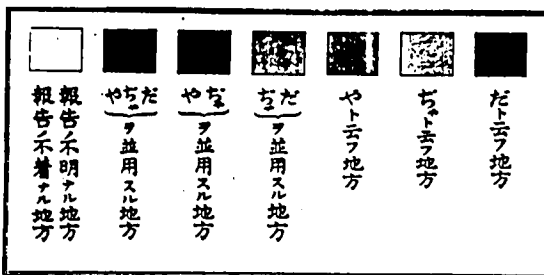 だト云フ地方
ぢゃト云フ地方
やト云フ地方
だ ぢゃ ヲ並用スル地方
ぢゃ や ヲ並用スル地方
だ ぢゃ や ヲ並用スル地方
報告ノ不明ナル地方
報告ノ不着ナル地方